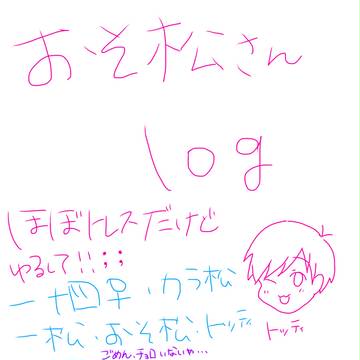 おそ松さん
log
ほぼトレスだけど
ゆるして!!;;
一十四早・カラ松
一松・おそ松・トッティ
トッティ
ごめん・チョロいないや…